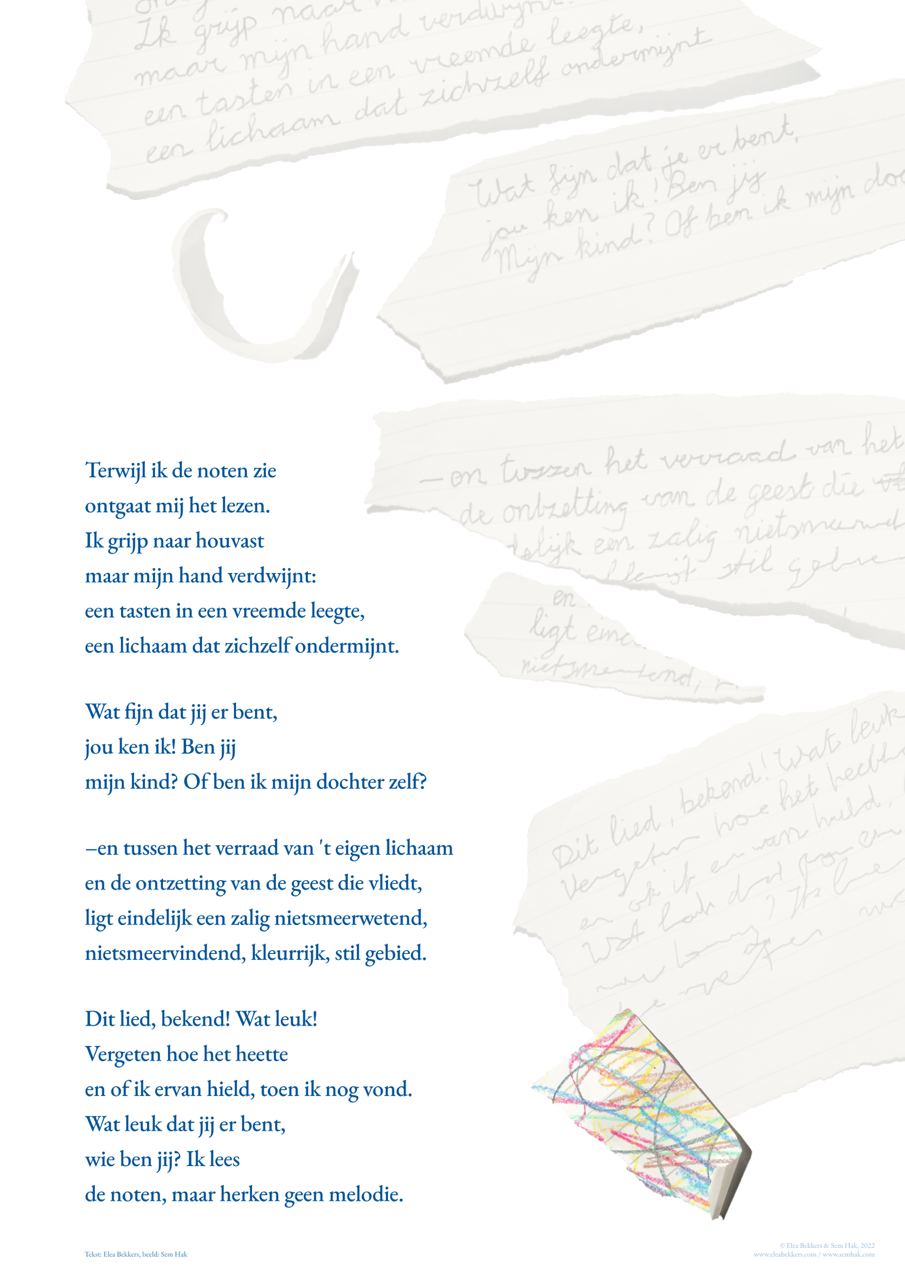 Ik grijp naar
maar mijn hand verdwijnt:
een tasten in een vreemde leegte,
een lichaam dat zichzelf ondermijnt
Wat fijn dat je er bent,
jou ken ik! Ben jij
Mijn kind? Of ben ik mijn
—en tussen het verraad van het
de ontzetting van de geest die
een zalig
stil
en
ligt
Terwijl ik de noten zie
ontgaat mij het lezen.
Ik grijp naar houvast
maar mijn hand verdwijnt:
een tasten in een vreemde leegte,
een lichaam dat zichzelf ondermijnt.
Wat fijn dat jij er bent,
jou ken ik! Ben jij
mijn kind? Of ben ik mijn dochter zelf?
–en tussen het verraad van 't eigen lichaam
en de ontzetting van de geest die vliedt,
ligt eindelijk een zalig nietsmeerwetend,
nietsmeervindend, kleurrijk, stil gebied.
Dit lied, bekend! Wat leuk!
Vergeten hoe het heette
en of ik ervan hield, toen ik nog vond.
Wat leuk dat jij er bent,
wie ben jij? Ik lees
de noten, maar herken geen melodie.
Dit lied, bekend! Wat leuk
Vergeten hoe het
en of ik er van hield,
Tekst: Elea Bekkers, beeld: Sem Hak
© Elea Bekkers & Sem Hak, 2022
www.eleabekkers.com / www.semhak.com